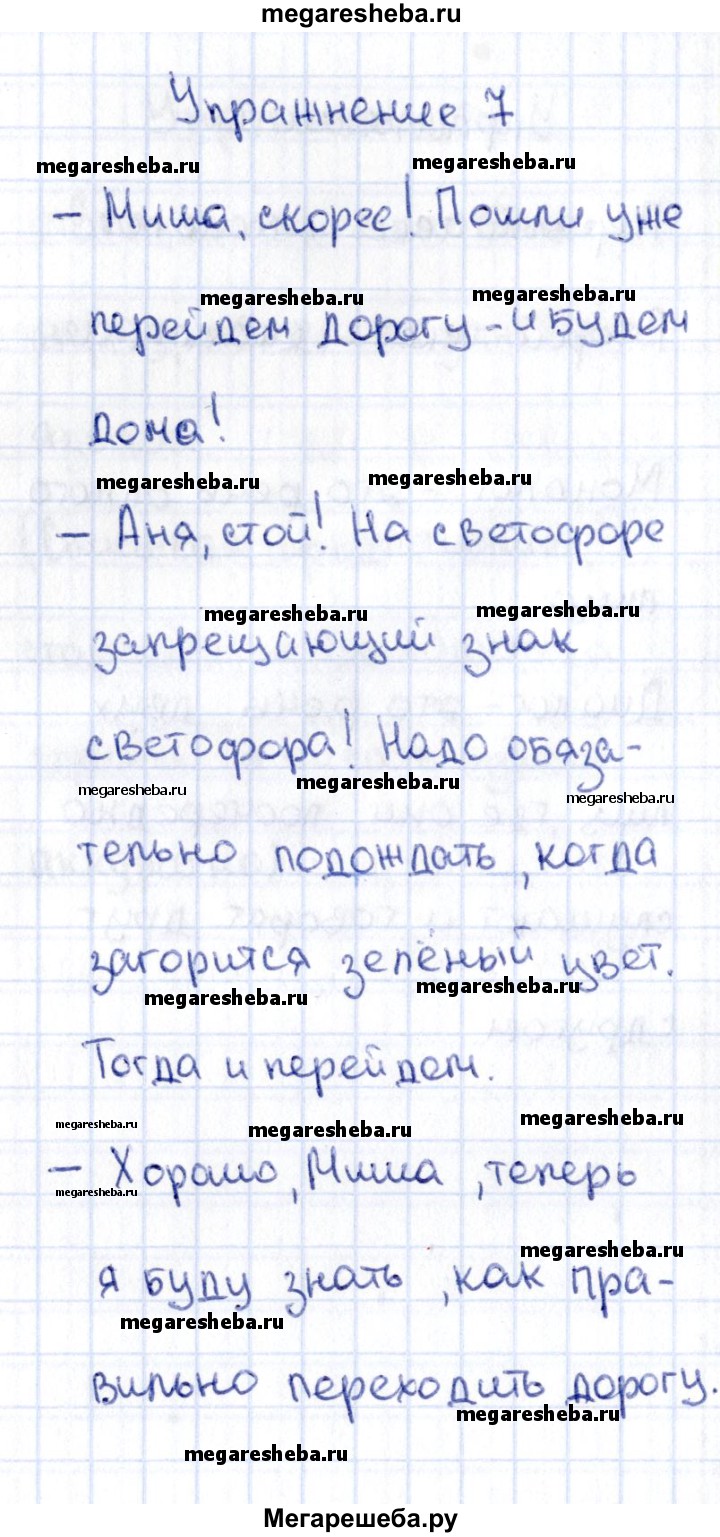 megaresheba.ru
Упражнение 7
megaresheba.ru megaresheba.ru
– Миша, скорее! Пошли уже
megaresheba.ru megaresheba.ru
перейдем дорогу – и будем
дома!
megaresheba.ru megaresheba.ru
– Аня, стой! На светофоре
megaresheba.ru megaresheba.ru
запрещающий знак
светофора! Надо обяза-
megaresheba.ru megaresheba.ru megaresheba.ru
тельно подождать, когда
загорится зелёный цвет.
megaresheba.ru megaresheba.ru
Тогда и перейдем.
megaresheba.ru megaresheba.ru megaresheba.ru
– Хорошо, Миша, теперь
megaresheba.ru
megaresheba.ru
я буду знать, как пра-
megaresheba.ru
вильно переходить дорогу.
megaresheba.ru
megaresheba.ru
Мегарешеба.ру